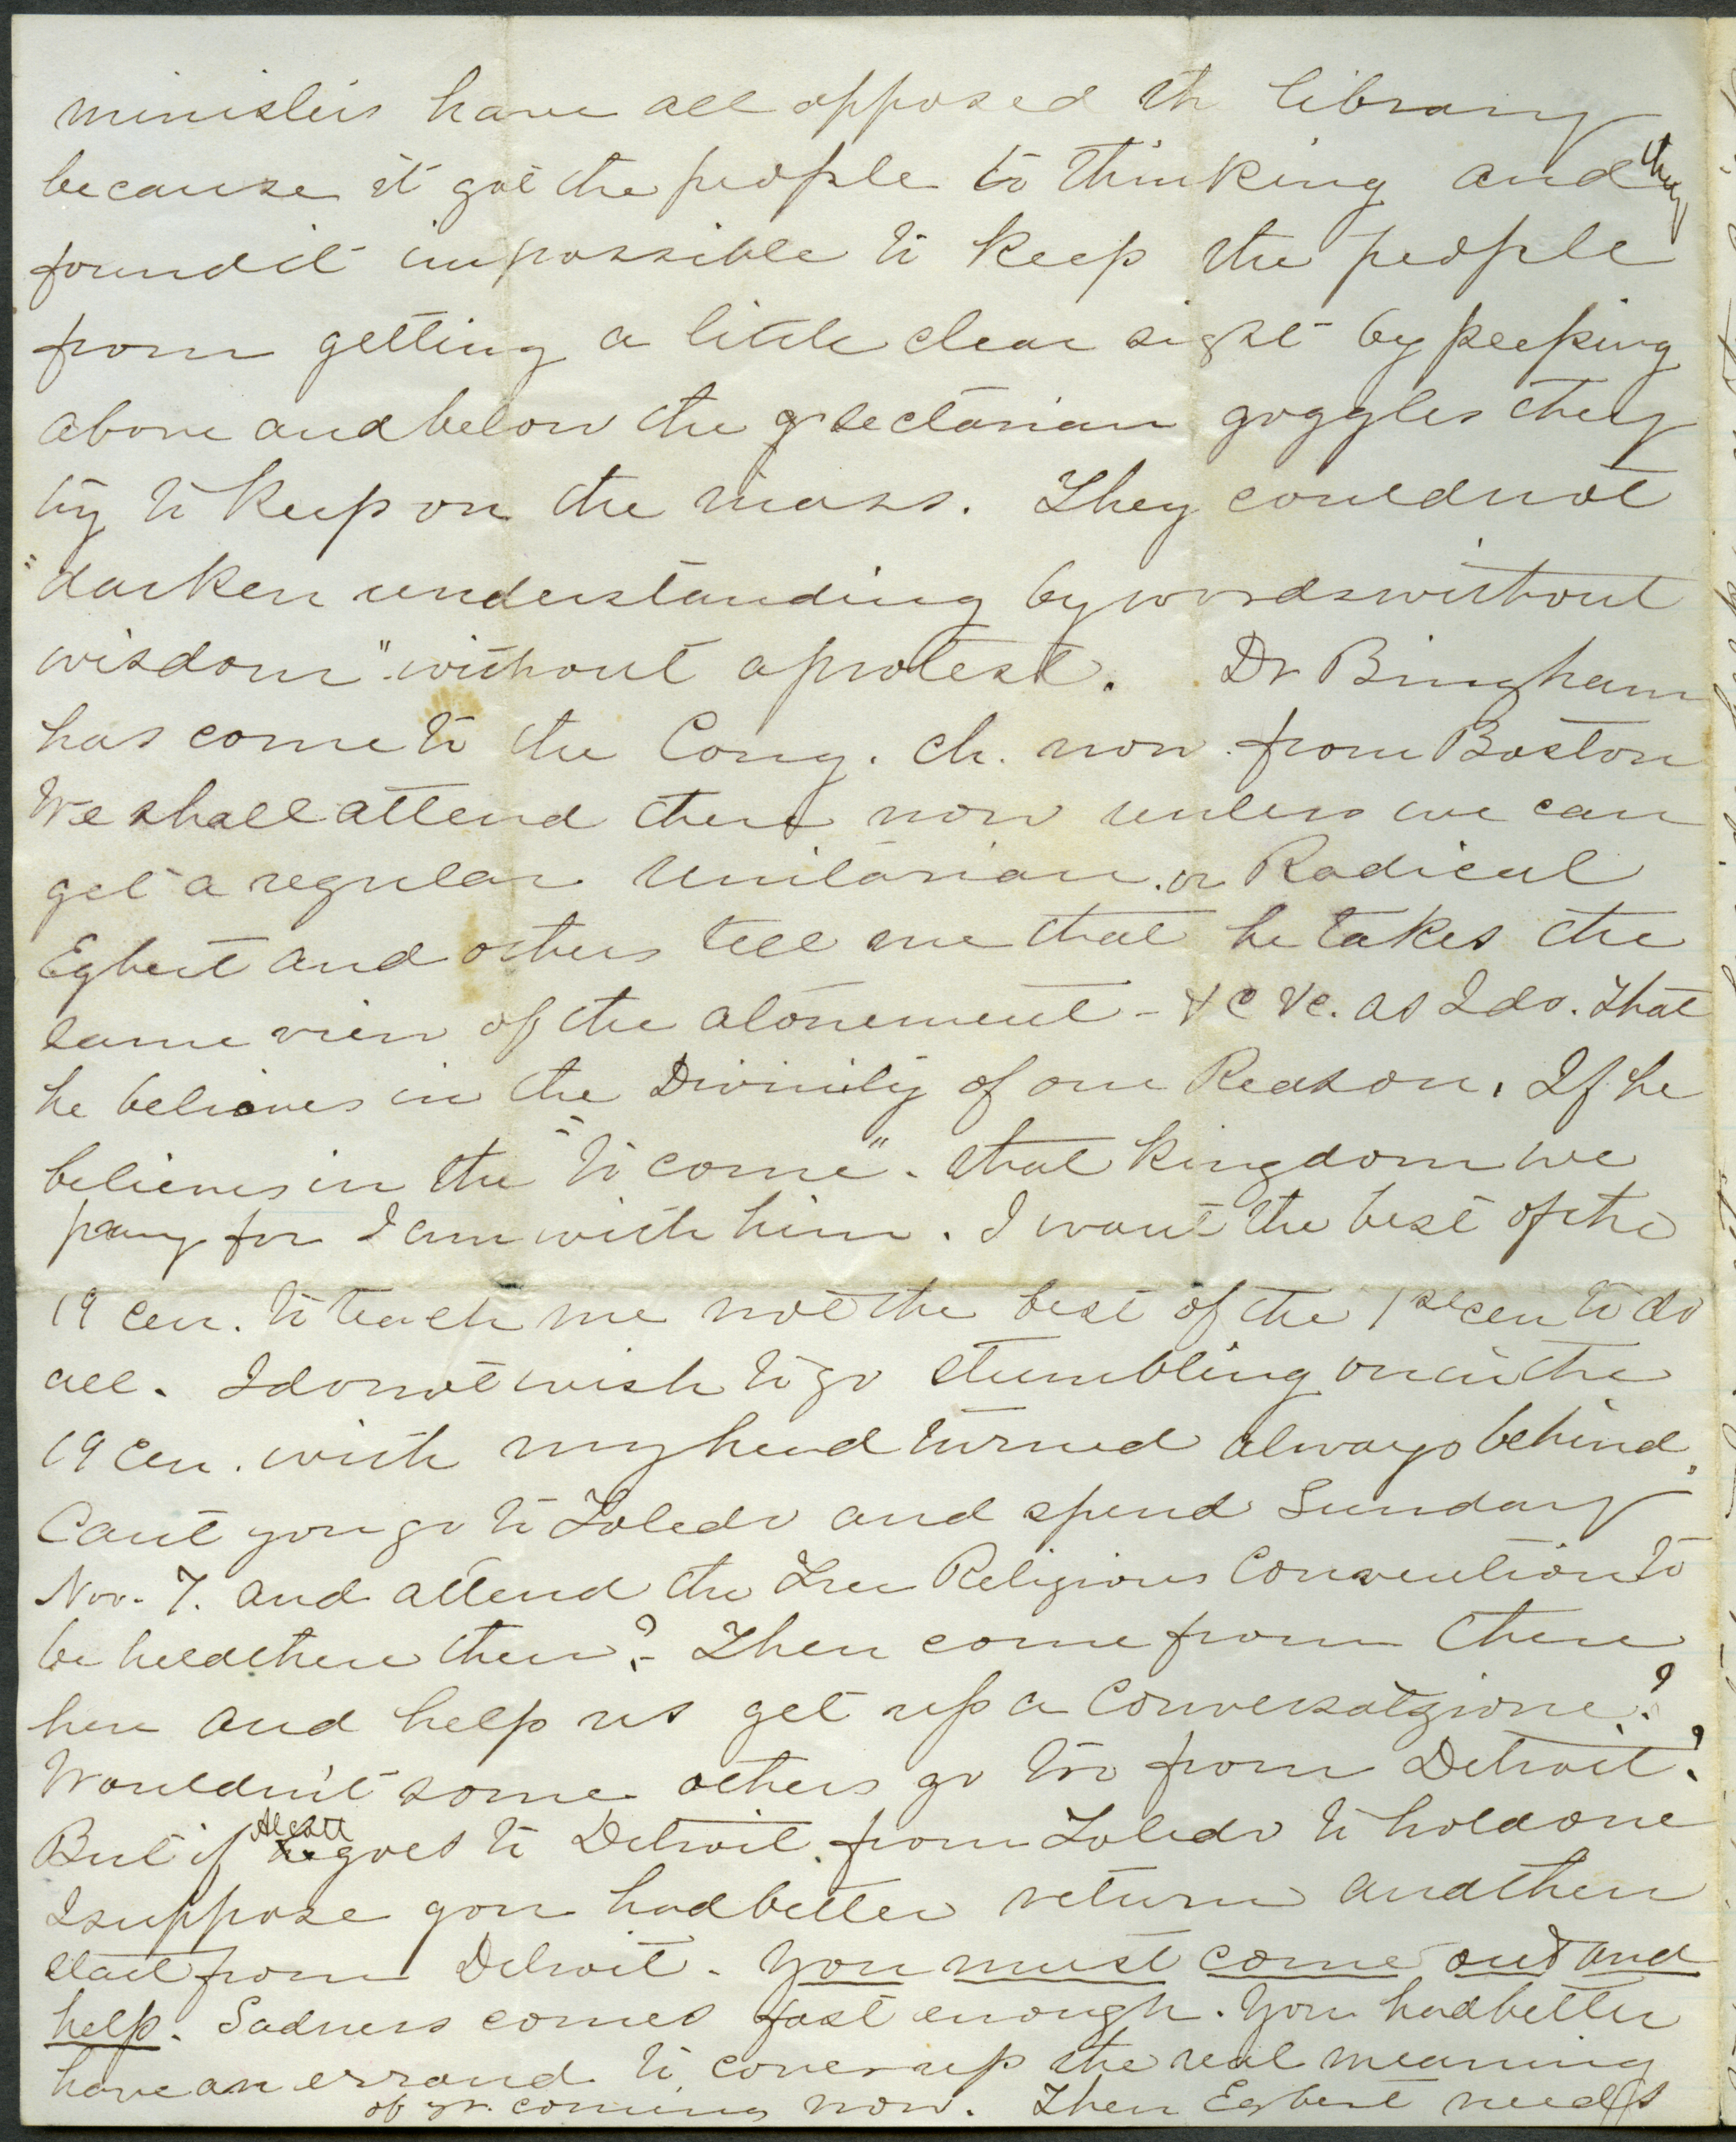 ministers have all opposed th library
because it got the people to thinking and they
found it impossible to keep the people
from getting a little clear sight by peeping
above and below the sectarian goggles they
try to keep on the mass. They could not
"darken understanding by words without
wisdom" without a protest. Dr Bingham
has come to the Cong. ch. now from Boston
We shall attend there now unless we can
get a regular Unitarian or Radical
Egbert and others tell me that he takes the
same view of the atonement - &c &c. as I do. that
he believes in the Divinity of our Reason. If he
believes in the "to come" - that kingdom we
pray for I am with him. I want the best of the
19 cen. to teach me not the best of the 1st cen to do
all. I do not wish to go stumbling on in the
19 cen. with my head turned always behind.
Cant you go to Toledo and spend Sunday
Nov. 7. and attend the Free Religious Convention to
be held there then? - Then come from there
here and help us get up a Conversatzione?
Wouldn't some others go too from Detroit?
But if Alcott goes to Detroit from Toledo to hold one
I suppose you had better return and then
start from Detroit - You must come out and
help. Sadness comes fast enough. You had better
have an errand to cover up the real meaning
of yr. coming now. Then Egbert needs